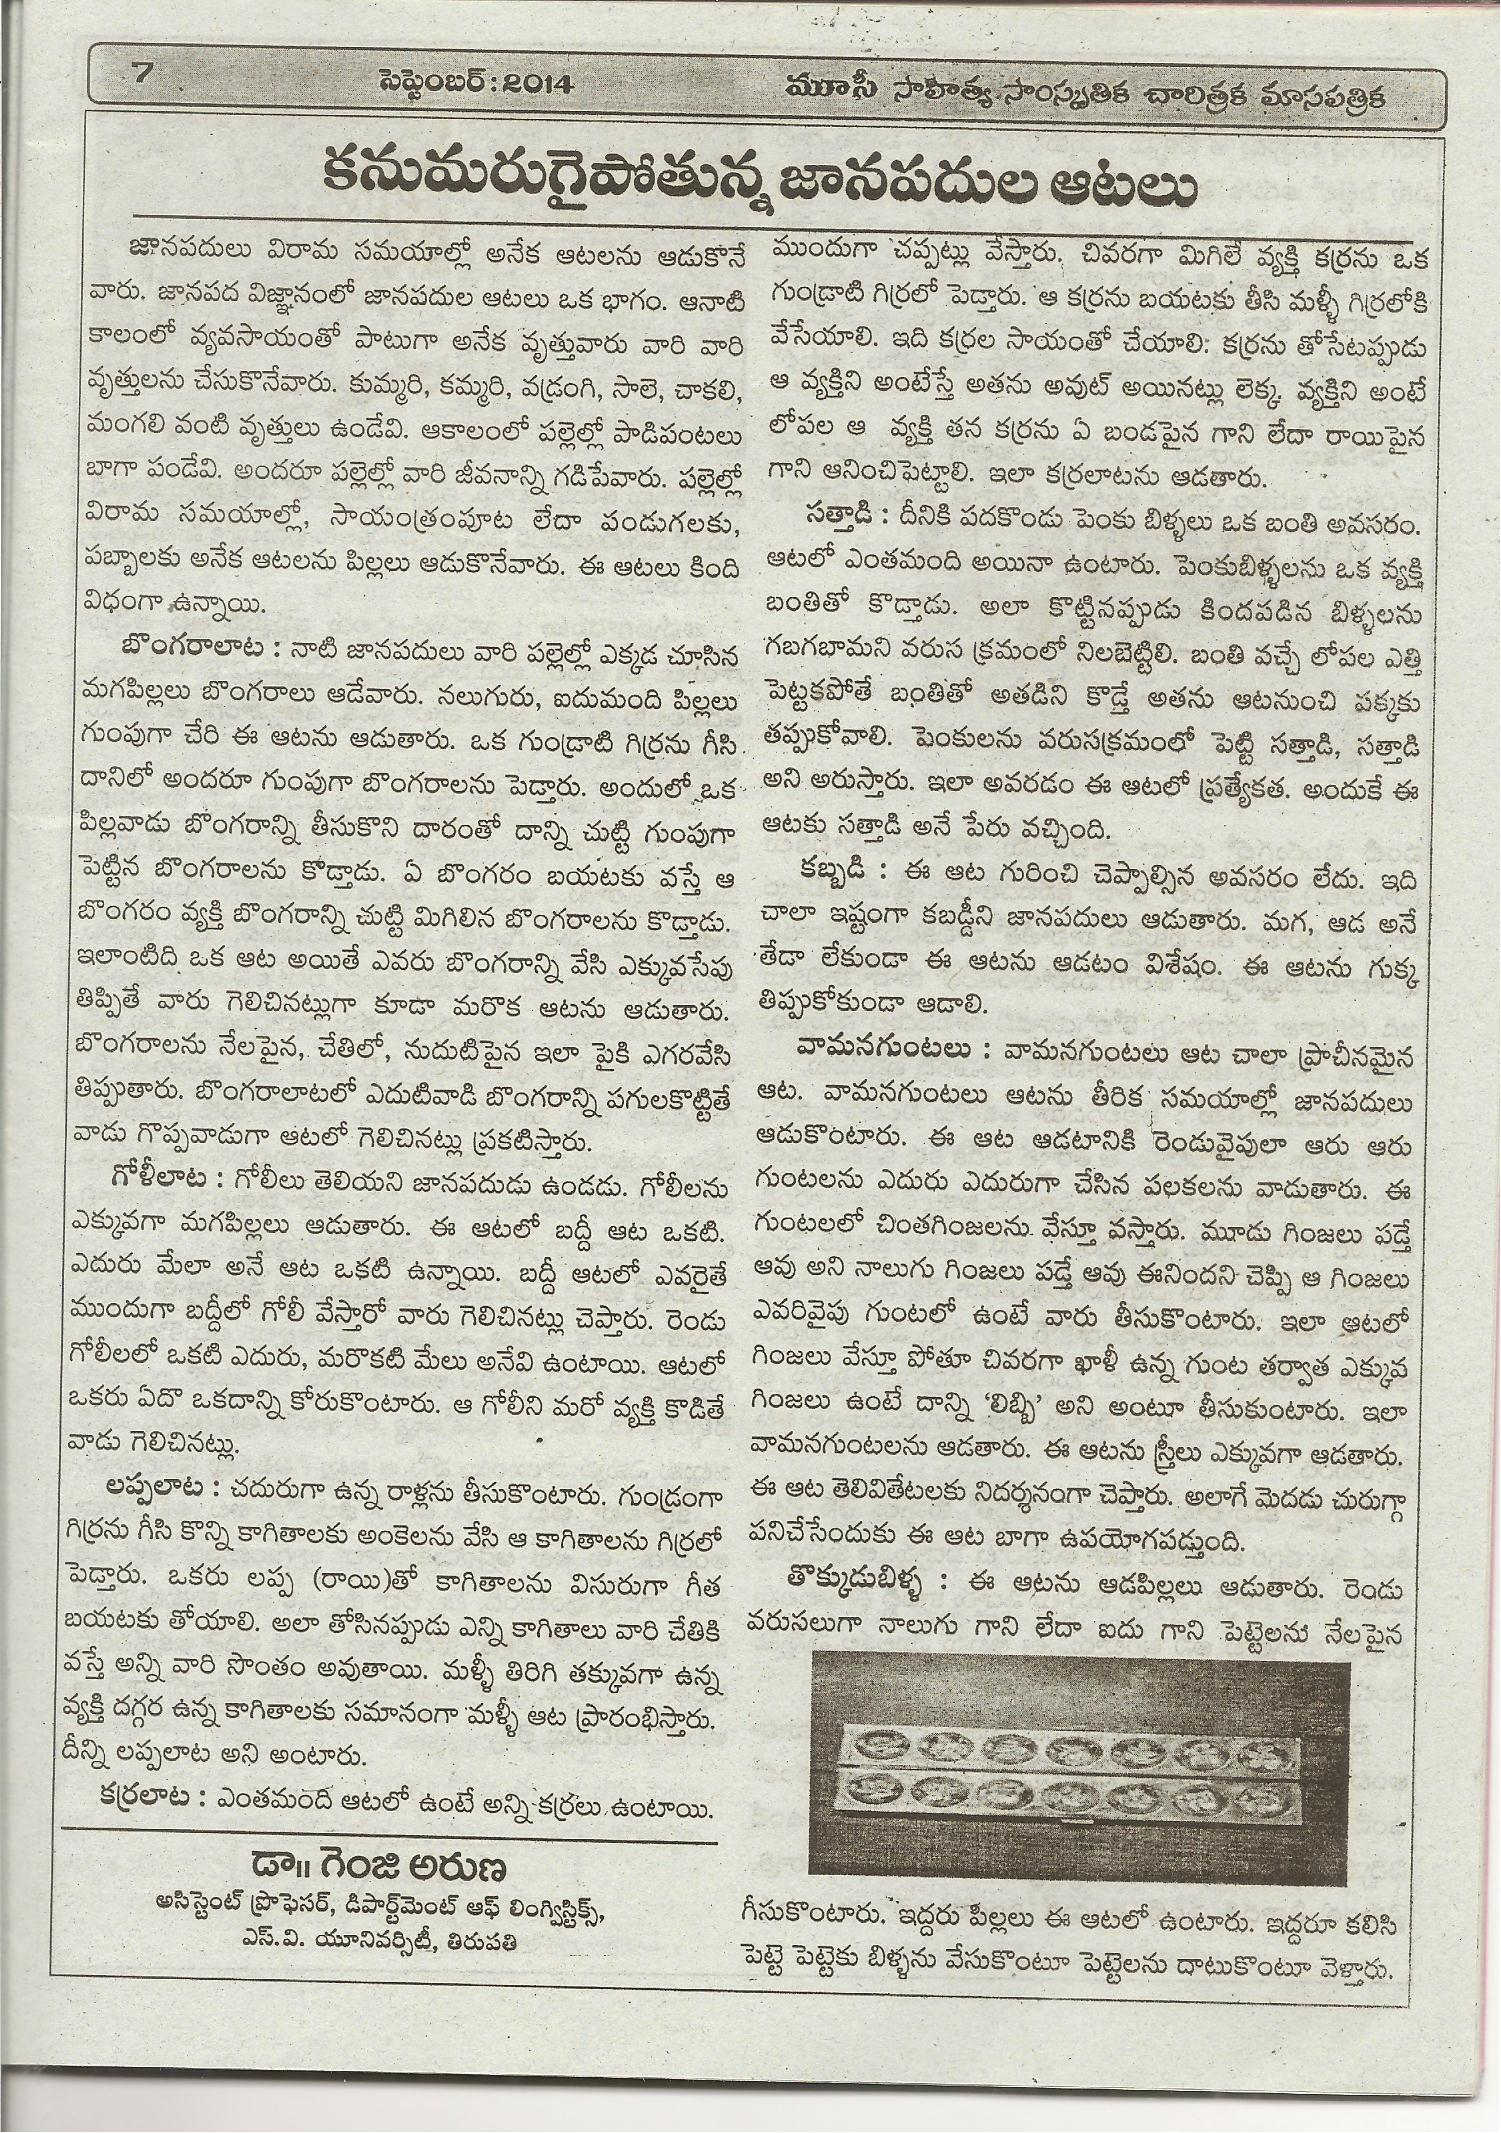 7
సెప్టెంబర్:2014
మూసీ సాహిత్య సాంస్కృతిక చారిత్రక మాసపత్రిక
కనుమరుగైపోతున్న జానపదుల ఆటలు
జానపదులు విరామ సమయాల్లో అనేక ఆటలను ఆడుకొనే
వారు. జానపద విజ్ఞానంలో జానపదుల ఆటలు ఒక భాగం. ఆనాటి
కాలంలో వ్యవసాయంతో పాటుగా అనేక వృత్తువారు వారి వారి
వృత్తులను చేసుకొనేవారు. కుమ్మరి, కమ్మరి, వడ్రంగి, సాలె, చాకలి,
మంగలి వంటి వృత్తులు ఉండేవి. ఆకాలంలో పల్లెల్లో పాడిపంటలు
బాగా పండేవి. అందరూ పల్లెల్లో వారి జీవనాన్ని గడిపేవారు. పల్లెల్లో
విరామ సమయాల్లో, సాయంత్రంపూట లేదా పండుగలకు,
పబ్బాలకు అనేక ఆటలను పిల్లలు ఆడుకొనేవారు. ఈ ఆటలు కింది
విధంగా ఉన్నాయి.
బొంగరాలాట : నాటి జానపదులు వారి పల్లెల్లో ఎక్కడ చూసిన
మగపిల్లలు బొంగరాలు ఆడేవారు. నలుగురు, ఐదుమంది పిల్లలు
గుంపుగా చేరి ఈ ఆటను ఆడుతారు. ఒక గుండ్రాటి గిర్రను గీసి
దానిలో అందరూ గుంపుగా బొంగరాలను పెడ్తారు. అందులో ఒక
పిల్లవాడు బొంగరాన్ని తీసుకొని దారంతో దాన్ని చుట్టి గుంపుగా
పెట్టిన బొంగరాలను కొడ్తాడు. ఏ బొంగరం బయటకు వస్తే ఆ
బొంగరం వ్యక్తి బొంగరాన్ని చుట్టి మిగిలిన బొంగరాలను కొడ్తాడు.
ఇలాంటిది ఒక ఆట అయితే ఎవరు బొంగరాన్ని వేసి ఎక్కువసేపు
తిప్పితే వారు గెలిచినట్లుగా కూడా మరొక ఆటను ఆడుతారు.
బొంగరాలను నేలపైన, చేతిలో, నుదుటిపైన ఇలా పైకి ఎగరవేసి
తిప్పుతారు. బొంగరాలాటలో ఎదుటివాడి బొంగరాన్ని పగులకొట్టితే
వాడు గొప్పవాడుగా ఆటలో గెలిచినట్లు ప్రకటిస్తారు.
గోళీలాట : గోలీలు తెలియని జానపదుడు ఉండడు. గోలీలను
ఎక్కువగా మగపిల్లలు ఆడుతారు. ఈ ఆటలో బద్దీ ఆట ఒకటి.
ఎదురు మేలా అనే ఆట ఒకటి ఉన్నాయి. బద్దీ ఆటలో ఎవరైతే
ముందుగా బద్దీలో గోలీ వేస్తారో వారు గెలిచినట్లు చెప్తారు. రెండు
గోలీలలో ఒకటి ఎదురు, మరొకటి మేలు అనేవి ఉంటాయి. ఆటలో
ఒకరు ఏదొ ఒకదాన్ని కోరుకొంటారు. ఆ గోలీని మరో వ్యక్తి కొడితే
వాడు గెలిచినట్లు.
లప్పలాట : చదురుగా ఉన్న రాళ్లను తీసుకొంటారు. గుండ్రంగా
గిర్రను గీసి కొన్ని కాగితాలకు అంకెలను వేసి ఆ కాగితాలను గిర్రలో
పెడ్తారు. ఒకరు లప్ప (రాయి)తో కాగితాలను విసురుగా గీత
బయటకు తోయాలి. అలా తోసినప్పుడు ఎన్ని కాగితాలు వారి చేతికి
వస్తే అన్ని వారి సొంతం అవుతాయి. మళ్ళీ తిరిగి తక్కువగా ఉన్న
వ్యక్తి దగ్గర ఉన్న కాగితాలకు సమానంగా మళ్ళీ ఆట ప్రారంభిస్తారు.
దీన్ని లప్పలాట అని అంటారు.
కర్రలాట : ఎంతమంది ఆటలో ఉంటే అన్ని కర్రలు ఉంటాయి.
డా॥ గెంజి అరుణ
అసిస్టెంట్ ప్రొఫెసర్, డిపార్ట్‌మెంట్ ఆఫ్ లింగ్విస్టిక్స్,
ఎస్.వి. యూనివర్సిటీ, తిరుపతి
ముందుగా చప్పట్లు వేస్తారు. చివరగా మిగిలే వ్యక్తి కర్రను ఒక
గుండ్రాటి గిర్రలో పెడ్తారు. ఆ కర్రను బయటకు తీసి మళ్ళీ గిర్రలోకి
వేసేయాలి. ఇది కర్రల సాయంతో చేయాలి. కర్రను తోసేటప్పుడు
ఆ వ్యక్తిని అంటేస్తే అతను అవుట్ అయినట్లు లెక్క. వ్యక్తిని అంటే
లోపల ఆ వ్యక్తి తన కర్రను ఏ బండపైన గాని లేదా రాయిపైన
గాని ఆనించిపెట్టాలి. ఇలా కర్రలాటను ఆడతారు.
సత్తాడి : దీనికి పదకొండు పెంకు బిళ్ళలు ఒక బంతి అవసరం.
ఆటలో ఎంతమంది అయినా ఉంటారు. పెంకుబిళ్ళలను ఒక వ్యక్తి
బంతితో కొడ్తాడు. అలా కొట్టినప్పుడు కిందపడిన బిళ్ళలను
గబగబామని వరుస క్రమంలో నిలబెట్టిలి. బంతి వచ్చే లోపల ఎత్తి
పెట్టకపోతే బంతితో అతడిని కొడ్తే అతను ఆటనుంచి పక్కకు
తప్పుకోవాలి. పెంకులను వరుసక్రమంలో పెట్టి సత్తాడి, సత్తాడి
అని అరుస్తారు. ఇలా అవరడం ఈ ఆటలో ప్రత్యేకత. అందుకే ఈ
ఆటకు సత్తాడి అనే పేరు వచ్చింది.
కబ్బడి : ఈ ఆట గురించి చెప్పాల్సిన అవసరం లేదు. ఇది
చాలా ఇష్టంగా కబడ్డీని జానపదులు ఆడుతారు. మగ, ఆడ అనే
తేడా లేకుండా ఈ ఆటను ఆడటం విశేషం. ఈ ఆటను గుక్క
తిప్పుకోకుండా ఆడాలి.
వామనగుంటలు : వామనగుంటలు ఆట చాలా ప్రాచీనమైన
ఆట. వామనగుంటలు ఆటను తీరిక సమయాల్లో జానపదులు
ఆడుకొంటారు. ఈ ఆట ఆడటానికి రెండువైపులా ఆరు ఆరు
గుంటలను ఎదురు ఎదురుగా చేసిన పలకలను వాడుతారు. ఈ
గుంటలలో చింతగింజలను వేస్తూ వస్తారు. మూడు గింజలు పడ్తే
ఆవు అని నాలుగు గింజలు పడ్తే ఆవు ఈనిందని చెప్పి ఆ గింజలు
ఎవరివైపు గుంటలో ఉంటే వారు తీసుకొంటారు. ఇలా ఆటలో
గింజలు వేస్తూ పోతూ చివరగా ఖాళీ ఉన్న గుంట తర్వాత ఎక్కువ
గింజలు ఉంటే దాన్ని ‘లిబ్బి’ అని అంటూ తీసుకుంటారు. ఇలా
వామనగుంటలను ఆడతారు. ఈ ఆటను స్త్రీలు ఎక్కువగా ఆడతారు.
ఈ ఆట తెలివితేటలకు నిదర్శనంగా చెప్తారు. అలాగే మెదడు చురుగ్గా
పనిచేసేందుకు ఈ ఆట బాగా ఉపయోగపడ్తుంది.
తొక్కుడుబిళ్ళ : ఈ ఆటను ఆడపిల్లలు ఆడుతారు. రెండు
వరుసలుగా నాలుగు గాని లేదా ఐదు గాని పెట్టెలను నేలపైన
గీసుకొంటారు. ఇద్దరు పిల్లలు ఈ ఆటలో ఉంటారు. ఇద్దరూ కలిసి
పెట్టె పెట్టెకు బిళ్ళను వేసుకొంటూ పెట్టెలను దాటుకొంటూ వెళ్తారు.